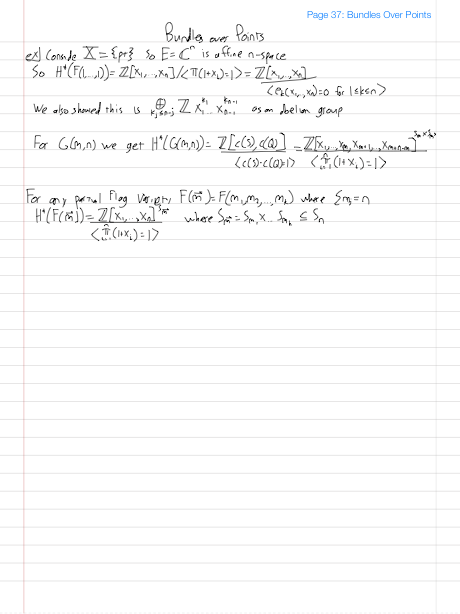 Page 37: Bundles Over Points
Bundles over Points
ex) Consider X = {pt} So E = ℂⁿ is affine n-space
So H*(F(1,...,1)) = ℤ[x₁,...,xₙ]/<π(1+xᵢ)=1> = ℤ[x₁,...,xₙ]
<eₖ(x₁,...,xₙ)=0 for 1≤k≤n>
We also showed this is ⊕ kⱼ≤n-j ℤ x₁^k₁ ... xₙ₋₁^kₙ₋₁ as an abelian group
For G(m,n) we get H*(G(m,n)) = ℤ[c(S), c(Q)] = ℤ[x₁,...,xₘ, xₘ₊₁,...,xₘ₊ₙ₋ₘ]
<c(S)·c(Q)=1> <π(1+xᵢ)=1>
For any partial Flag Variety F(m⃗) = F(m₁,m₂,...,mₖ) where Σmⱼ=n
H*(F(m⃗)) = ℤ[x₁,...,xₙ]^Sm⃗ where Sm⃗ = Sm₁ x... Smₖ ≤ Sₙ
<π(1+xᵢ)=1>